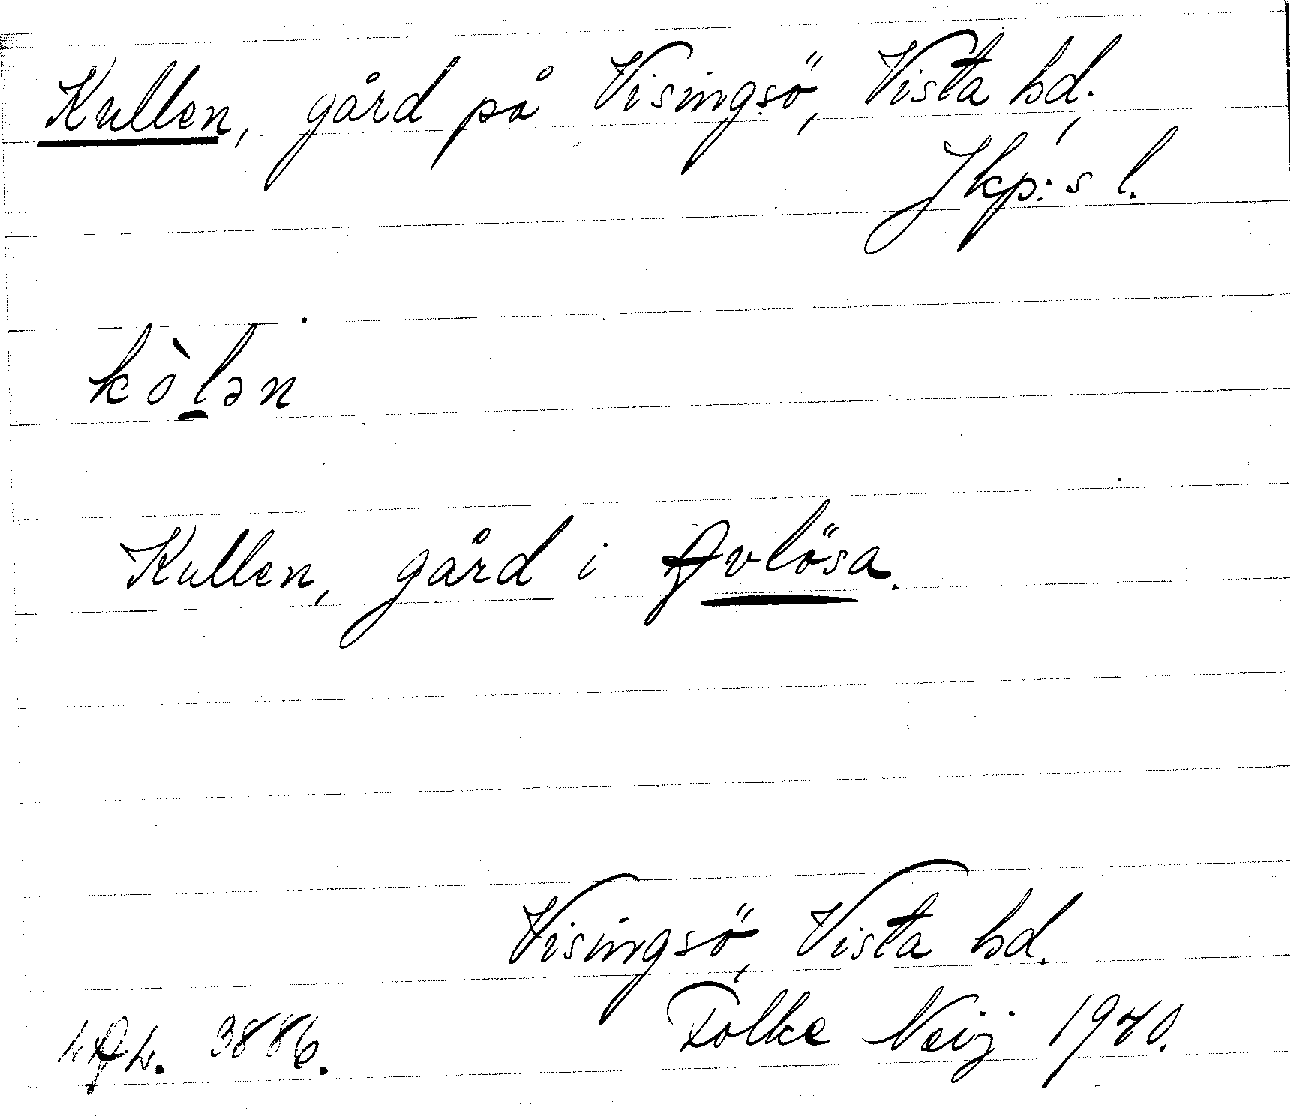 Kullen, gård på Visingsö, Vista hd,
Jkp:s l.
kòl̠ən
Kullen, gård i Avlösa.
Visingsö, Vista hd.
Folke Neij 1940.
3886.